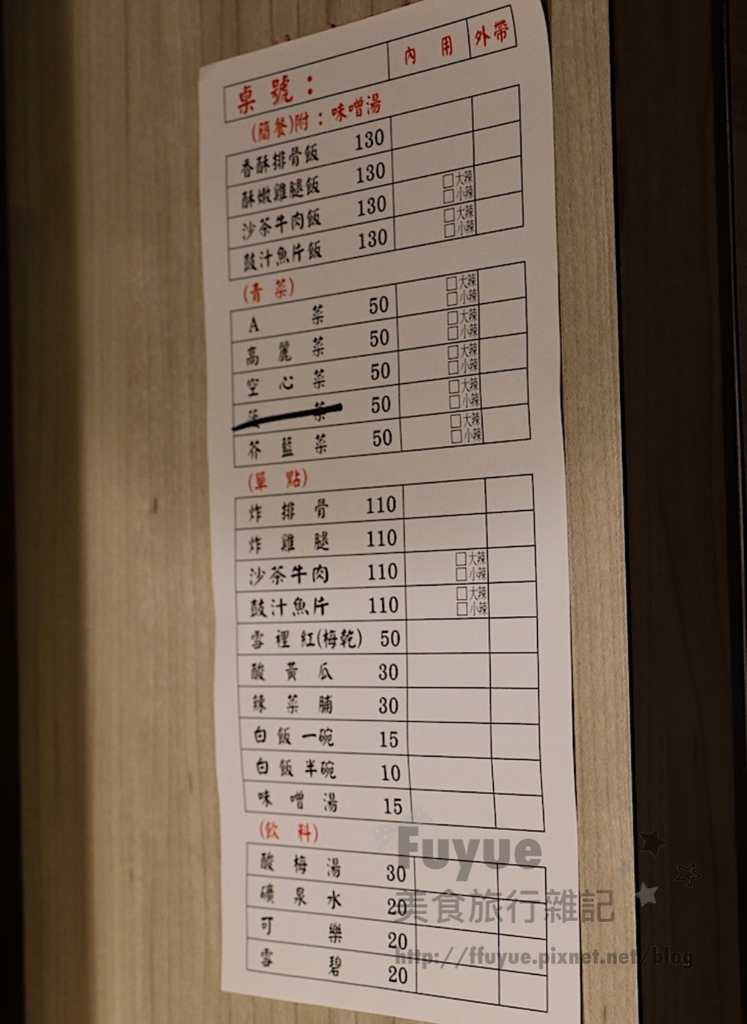 桌號： 內用 外帶
(簡餐)附：味噌湯
香酥排骨飯 130
酥嫩雞腿飯 130
沙茶牛肉飯 130 □大辣 □小辣
鼓汁魚片飯 130 □大辣 □小辣
(青菜)
A菜 50 □大辣 □小辣
高麗菜 50 □大辣 □小辣
空心菜 50 □大辣 □小辣
菜 50 □大辣 □小辣
芥藍菜 50 □大辣 □小辣
(單點)
炸排骨 110
炸雞腿 110
沙茶牛肉 110 □大辣 □小辣
鼓汁魚片 110 □大辣 □小辣
雪裡紅(梅乾) 50
酸黃瓜 30
辣菜脯 30
白飯一碗 15
白飯半碗 10
味噌湯 15
(飲料)
酸梅湯 30
礦泉水 20
可樂 20
雪碧 20
Fuyue
美食旅行雜記
http://ffuyue.pixnet.net/blog